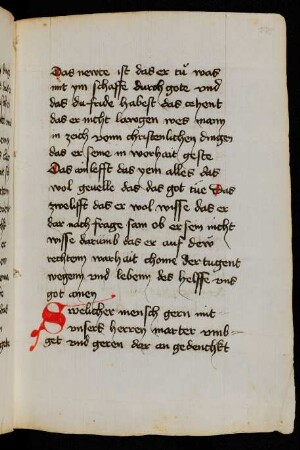 Das newte ist das er tu was
mit ym schaffe durch gote vnd
das du fride habest das cehent
das er nicht lawgen wes mam
in zeich vonn christenlichen dingen
das er seine in worhait geste
Das ainlefft das yem alles das
wol geuelle das das got tue Das
zwelifft das er wol wisse das er
dar nach frage sam ob er sein nicht
wisse darumb das er auf dew
rechtem warhait chome der tugent
wegem vnd lebenn des helffe vns
got amen
Swelicher mensch gern mit
vnsers herren marter vmb
get vnd geren dar an gedenchkt